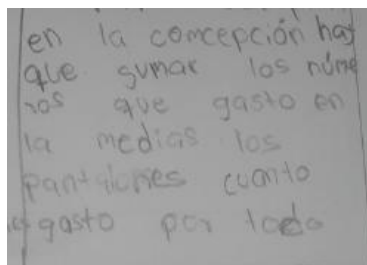 en la comcepción hay
que sumar los núme
ros que gasto en
la medias los
pantalones cuanto
gasto por todo